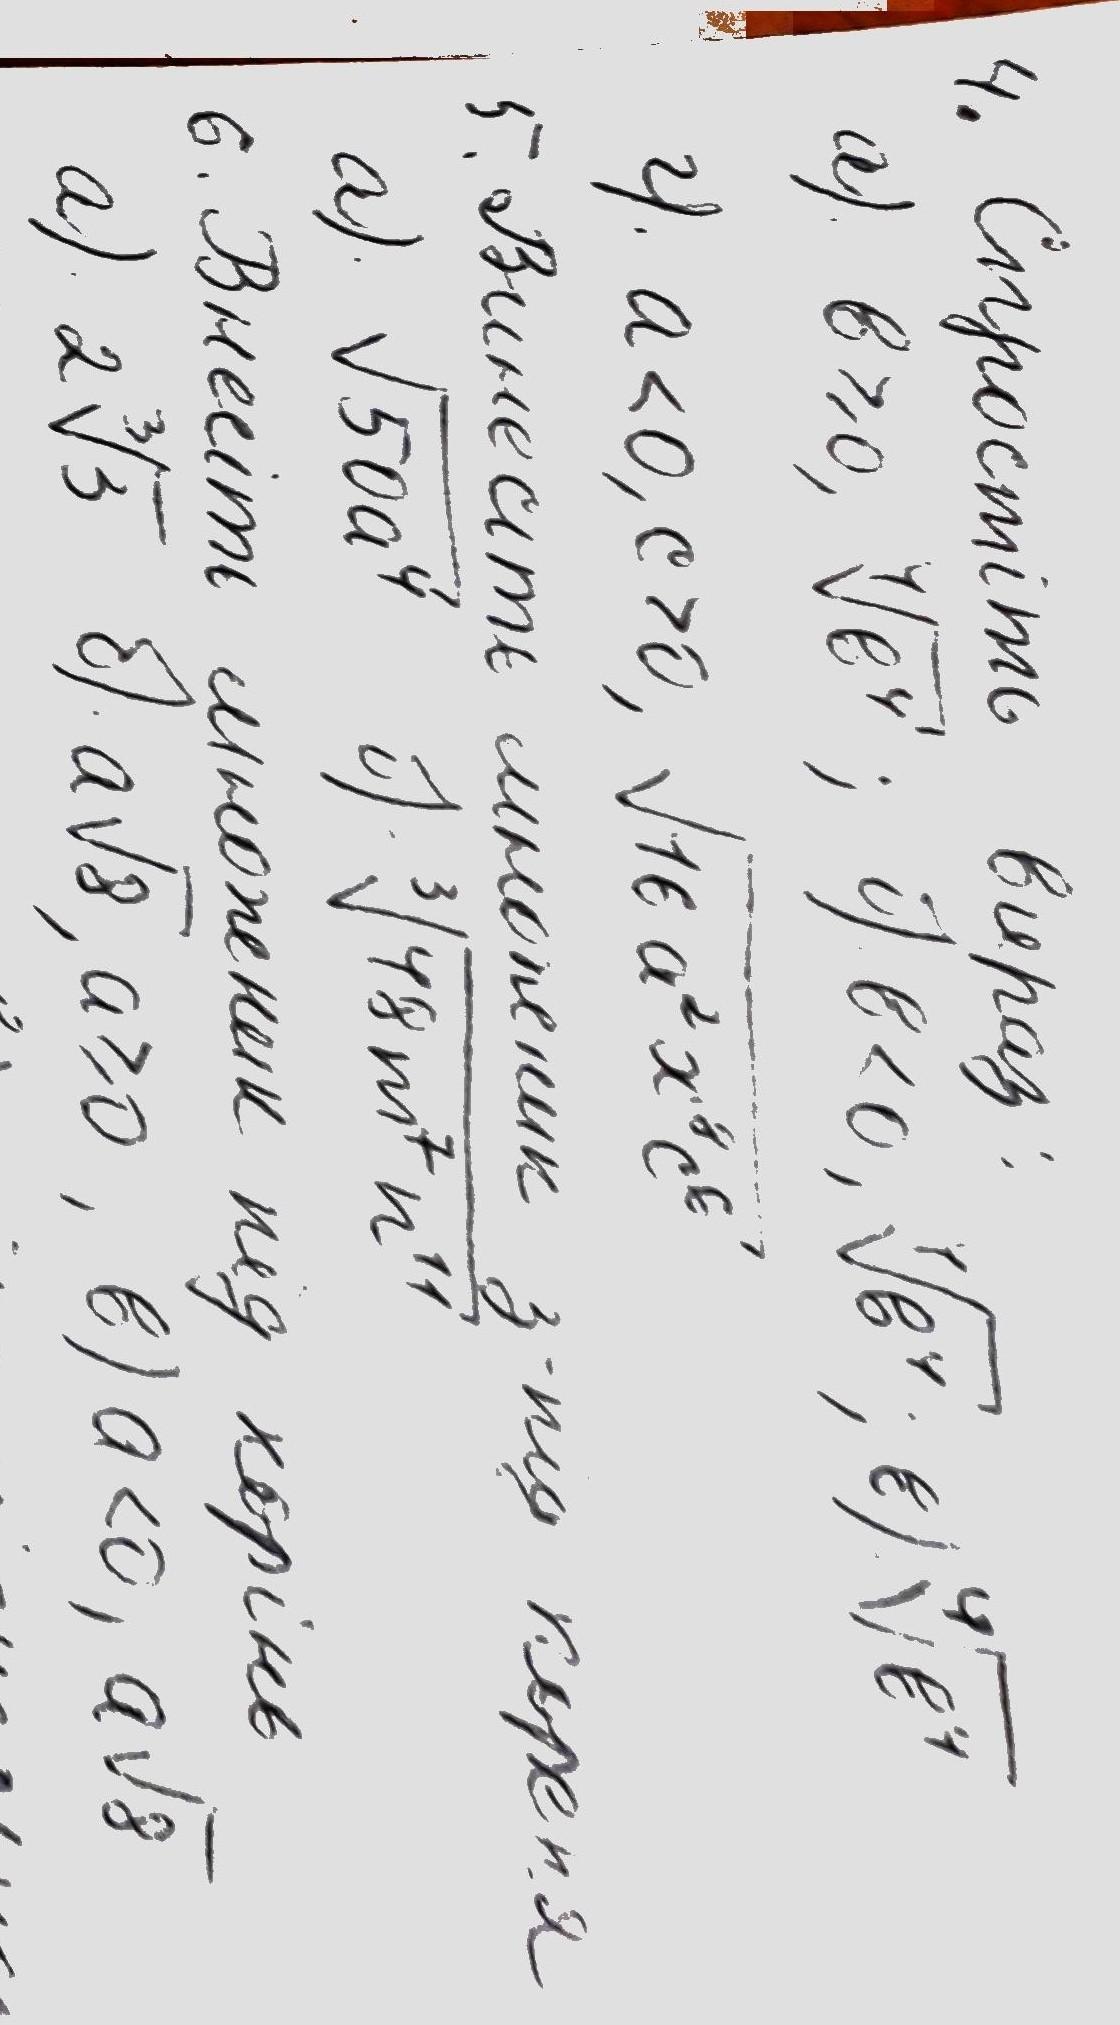 4. Спростіть вираз:
а). в ≥ 0, ⁴√в⁴; б) в < 0, ⁴√в⁴; в) ⁴√в⁴
г). а < 0, с > 0, √16 а² х⁸ с⁶,
5. Винесить множник з-під кореня
а). √50а⁴ б). ³√48 m⁷ n¹¹
6. Внесіть множник під корінь
а). 2 ³√3 б). а√8, а ≥ 0, в) а < 0, а√8